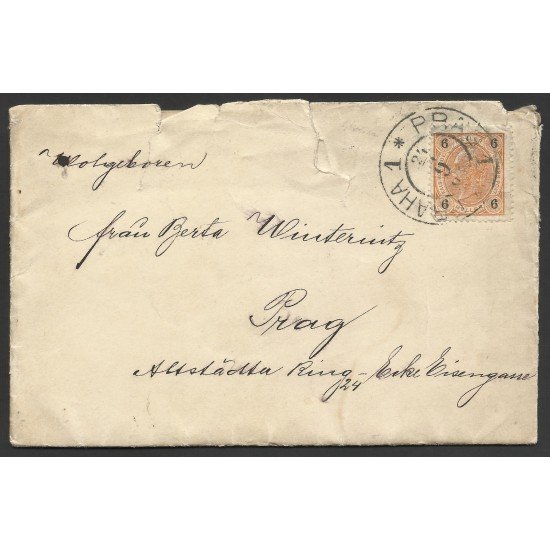 PRAG 1
* PRAHA 1
6 6
6 6
Wolgeboren
frau Berta Winternitz
Prag
Altstädter Ring - Ecke Eisengasse
24